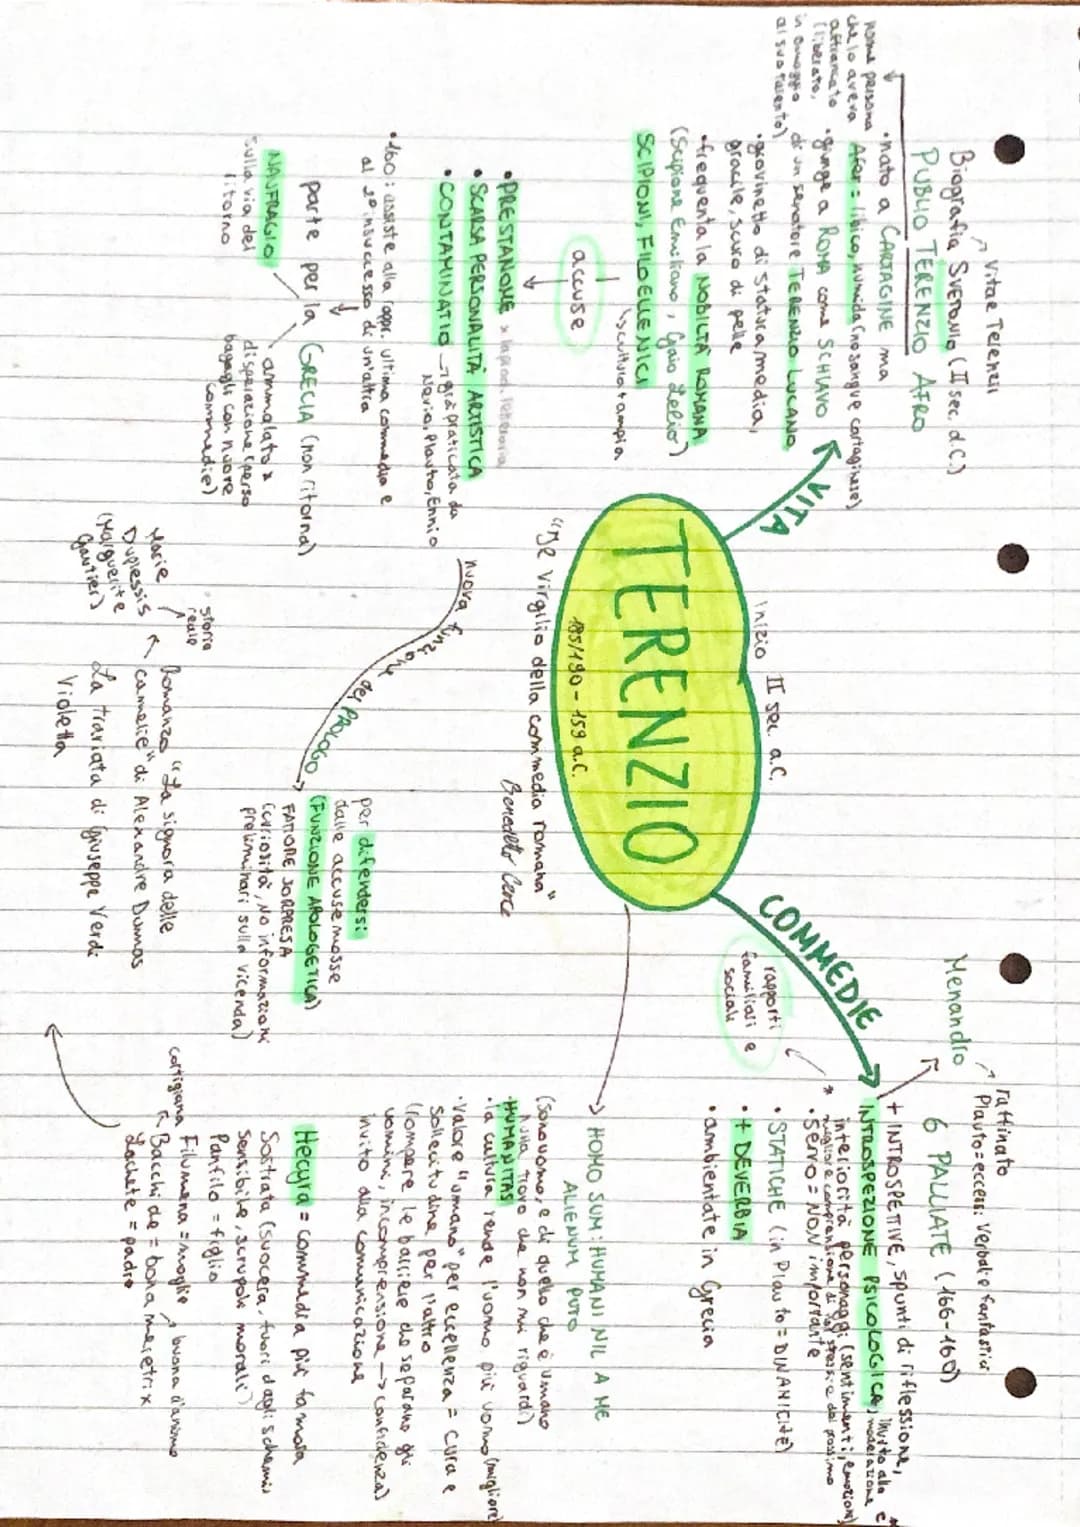 TERENZIO
185/190 - 159 a.C.
Inizio II sec. a.C.
"Il Virgilio della commedia romana"
Benedetto Croce
VITA
Vitae Terenzii
Biografia SVETONIO (II sec. d.C.)
PUBLIO TERENZIO AFRO
nome persona
che lo aveva
affrancato
(liberato,
in omaggio
al suo talento)
• nato a CARTAGINE ma
Afer = libico, numida (no sangue cartaginese)
• giunge a ROMA come SCHIAVO
di un senatore TERENZIO LUCANO
• giovinetto di statura media,
gracile, scuro di pelle
• frequenta la NOBILTÀ ROMANA
(Scipione Emiliano, Gaio Lelio)
SCIPIONI, FILOELLENICI
↳ cultura + ampia
accuse
• PRESTANOME
• SCARSA PERSONALITÀ ARTISTICA
• CONTAMINATIO → già praticata da
Nevio, Plauto, Ennio
• 160: assiste alla rappr. ultima commedia e
al 2° insuccesso di un'altra
parte per la GRECIA (non ritorna)
NAUFRAGIO
sulla via del
ritorno
ammalato x
disperazione (perso
bagagli con nuove
commedie)
nuova funzione del PROLOGO
per difendersi
dalle accuse mosse
(FUNZIONE APOLOGETICA)
FATTORE SORPRESA
(curiosità, NO informazioni
preliminari sulla vicenda)
COMMEDIE
raffinato
Plauto = eccessi verbali e fantastici
Menandro
6 PALLIATE (166-160)
+ INTROSPETTIVE, spunti di riflessione,
INTROSPEZIONE PSICOLOGICA, invito alla moderazione e
interiorità personaggi (sentimenti, emozioni)
* migliore comprensione di se stessi e del prossimo
• servo = NON importante
rapporti
familiari e
sociali
• STATICHE (in Plauto = DINAMICITÀ)
• + DEVERBIA
• ambientate in Grecia
HOMO SUM: HUMANI NIL A ME
ALIENUM PUTO
(sono uomo, e di quello che è umano
nulla trovo che non mi riguardi)
• HUMANITAS
• la cultura rende l'uomo più uomo (migliore)
• Valore "umano" per eccellenza = cura e
sollecitudine per l'altro
(rompere le barriere che separano gli
uomini, incomprensione → confidenza)
invito alla comunicazione
Hecyra = commedia più famosa
Sostrata (suocera, fuori dagli schemi
sensibile, scrupoli morali)
Panfilo = figlio
Filumena = moglie
cortigiana
buona d'animo
Bacchide = bona meretrix
Lachete = padre
Romanzo "La signora delle
camelie" di Alexandre Dumas
La traviata di Giuseppe Verdi
Violetta
storia
reale
Marie
Duplessis
(Marguerite
Gautier)